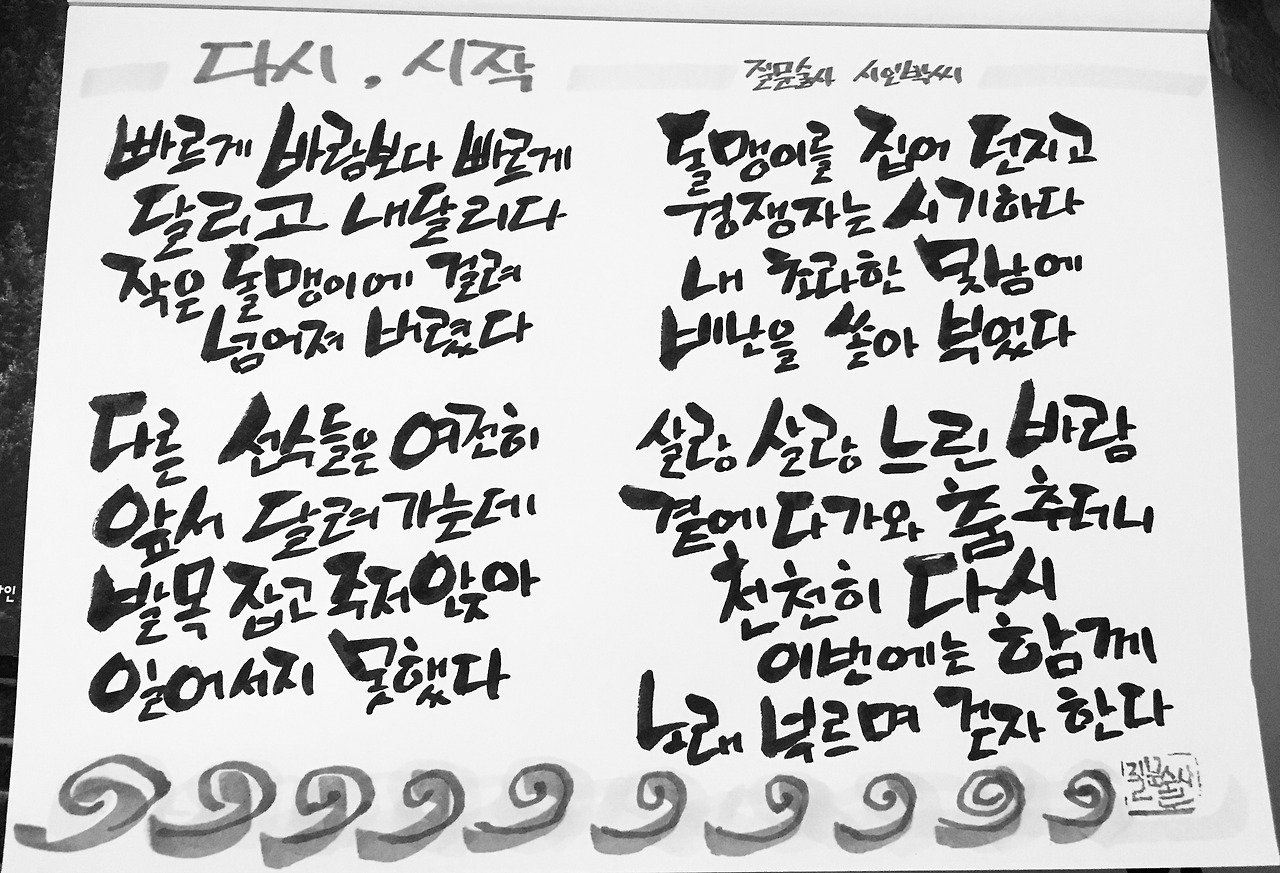 다시, 시작
질문술사 시인박씨
빠르게 바람보다 빠르게
달리고 내달리다
작은 돌맹이에 걸려
넘어져 버렸다
다른 선수들은 여전히
앞서 달려가는데
발목 잡고 주저앉아
일어서지 못했다
돌맹이를 집어 던지고
경쟁자는 시기하다
내 초라한 못남에
비난을 쏟아 부었다
살랑 살랑 느린 바람
곁에 다가와 춤추더니
천천히 다시
이번에는 함께
노래 부르며 걷자 한다
질문술사